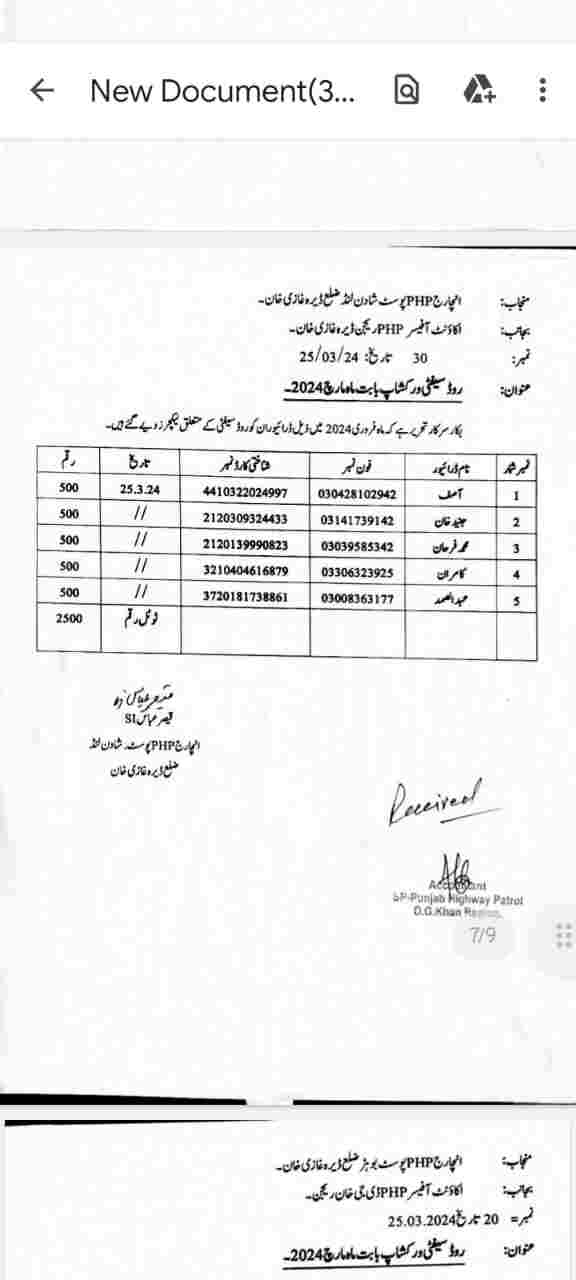 New Document(3...
منجاب: انچارج PHP پوسٹ شادن لنڈ ضلع ڈیرہ غازی خان۔
بجانب: اکاؤنٹ آفیسر PHP ریجن ڈیرہ غازی خان۔
نمبر: 30 تاریخ: 25/03/24
عنوان: روڈ سیفٹی ورکشاپ بابت ماہ مارچ 2024۔
بکار سرکار تحریر ہے کہ ماہ فروری 2024 میں ذیل ڈرائیوران کو روڈ سیفٹی کے متعلق لیکچرز دیے گئے ہیں۔
نمبر شمار نام ڈرائیور فون نمبر شناختی کارڈ نمبر تاریخ رقم
1 آصف 030428102942 4410322024997 25.3.24 500
2 جنید خان 03141739142 2120309324433 // 500
3 محمد فرحان 03039585342 2120139990823 // 500
4 کامران 03306323925 3210404616879 // 500
5 عبدالصمد 03008363177 3720181738861 // 500
ٹوٹل رقم 2500
قیصر عباس SI
انچارج PHP پوسٹ شادن لنڈ
ضلع ڈیرہ غازی خان
Received
Accountant
SP-Punjab Highway Patrol
D.G.Khan Region
7/9
منجاب: انچارج PHP پوسٹ بوہڑ ضلع ڈیرہ غازی خان۔
بجانب: اکاؤنٹ آفیسر PHP ڈی جی خان ریجن۔
نمبر = 20 تاریخ 25.03.2024
عنوان: روڈ سیفٹی ورکشاپ بابت ماہ مارچ 2024۔